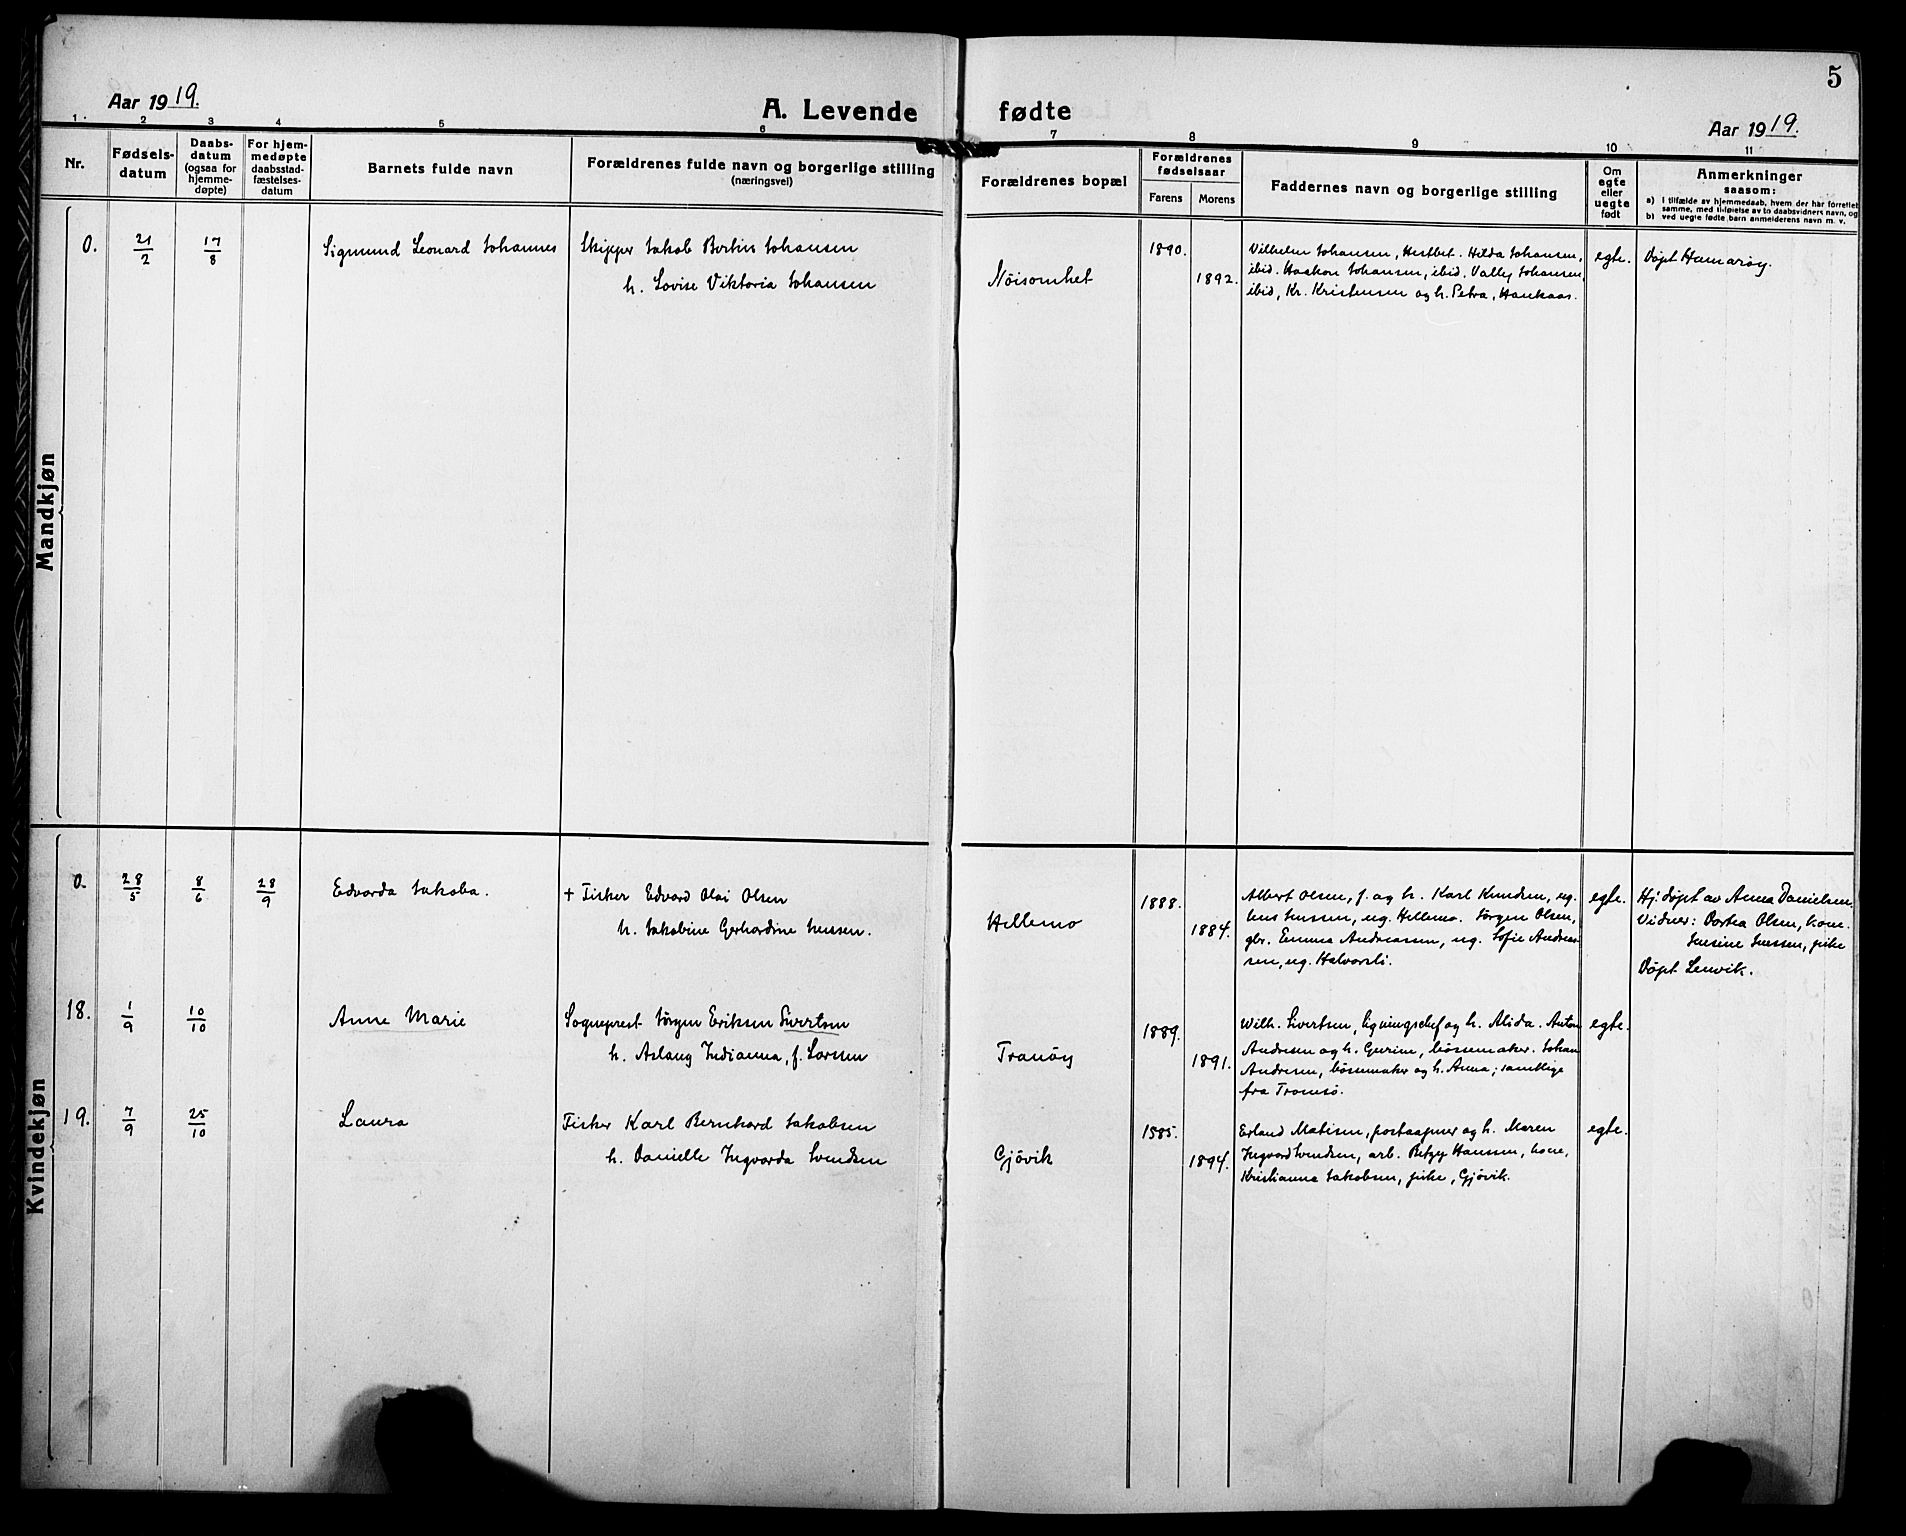 5
Aar 1919.
A. Levende fødte
Aar 1919.
1. 2 3 4 5 6 7 8 9 10 11
Nr.
Fødsels-
datum
Daabs-
datum
(ogsaa for
hjemme-
døpte)
For hjem-
medøpte
daabsstad-
fæstelses-
datum
Barnets fulde navn
Forældrenes fulde navn og borgerlige stilling
(næringsvei)
Forældrenes bopæl
Forældrenes
fødselsaar
Farens Morens
Faddernes navn og borgerlige stilling
Om
egte
eller
uegte
født
Anmerkninger
saasom:
a) I tilfælde av hjemmedaab, hvem der har forrettet
samme, med tilføielse av to daabsvidners navn, og
b) ved uegte fødte barn anmelderens navn m. v.
Mandkjøn
0. 21/2 17/8 Sigmund Leonard Johannes
Skipper Jakob Bertin Johansen
h. Lovise Viktoria Johansen
Nöisomhet
1890.
1892.
Vilhelm Johansen, Hestbet. Hilda Johansen,
ibid. Haakon Johansen, ibid. Vally Johansen,
ibid, Kr. Kristensen og h. Petra, Haukaas.
egte.
Döpt Hamaröy.
Kvindekjøn
0. 28/5 8/6 28/9 Edvarda Jakoba.
+ Fisker Edvard Olai Olsen
h. Jakobine Gerhardine Jenssen.
Hellemo
1888.
1884.
Albert Olsen, f. og h. Karl Knudsen, ug.
Jens Jenssen, ug. Hellemo. Jörgen Olsen,
gbr. Emma Andreassen, ug. Sofie Andreas-
sen, ug. Halvarsli.
egte.
Hj. döpt av Anna Danielsen.
Vidner: Dortea Olsen, kone.
Jensine Jenssen, pike
Döpt Lenvik.
18. 1/9 10/10 Anne Marie
Sogneprest Jörgen Eriksen Sivertsen
h. Aslaug Indianna, f. Larsen
Tranöy
1889.
1891.
Wilh. Sivertsen, ligningschef og h. Alida. Anton
Andresen og h. Gurine, bössemaker. Johan
Andresen, bössemaker og h. Anna; samtlige
fra Tromsö.
egte.
19. 7/9 25/10 Laura
Fisker Karl Bernhard Jakobsen
h. Danielle Ingvarda Svendsen
Gjövik
1885.
1894.
Erland Matisen, postaapner og h. Maren
Ingvard Svendsen, arb. Betzy Hanssen, kone,
Kristianna Jakobsen, pike, Gjövik.
egte.